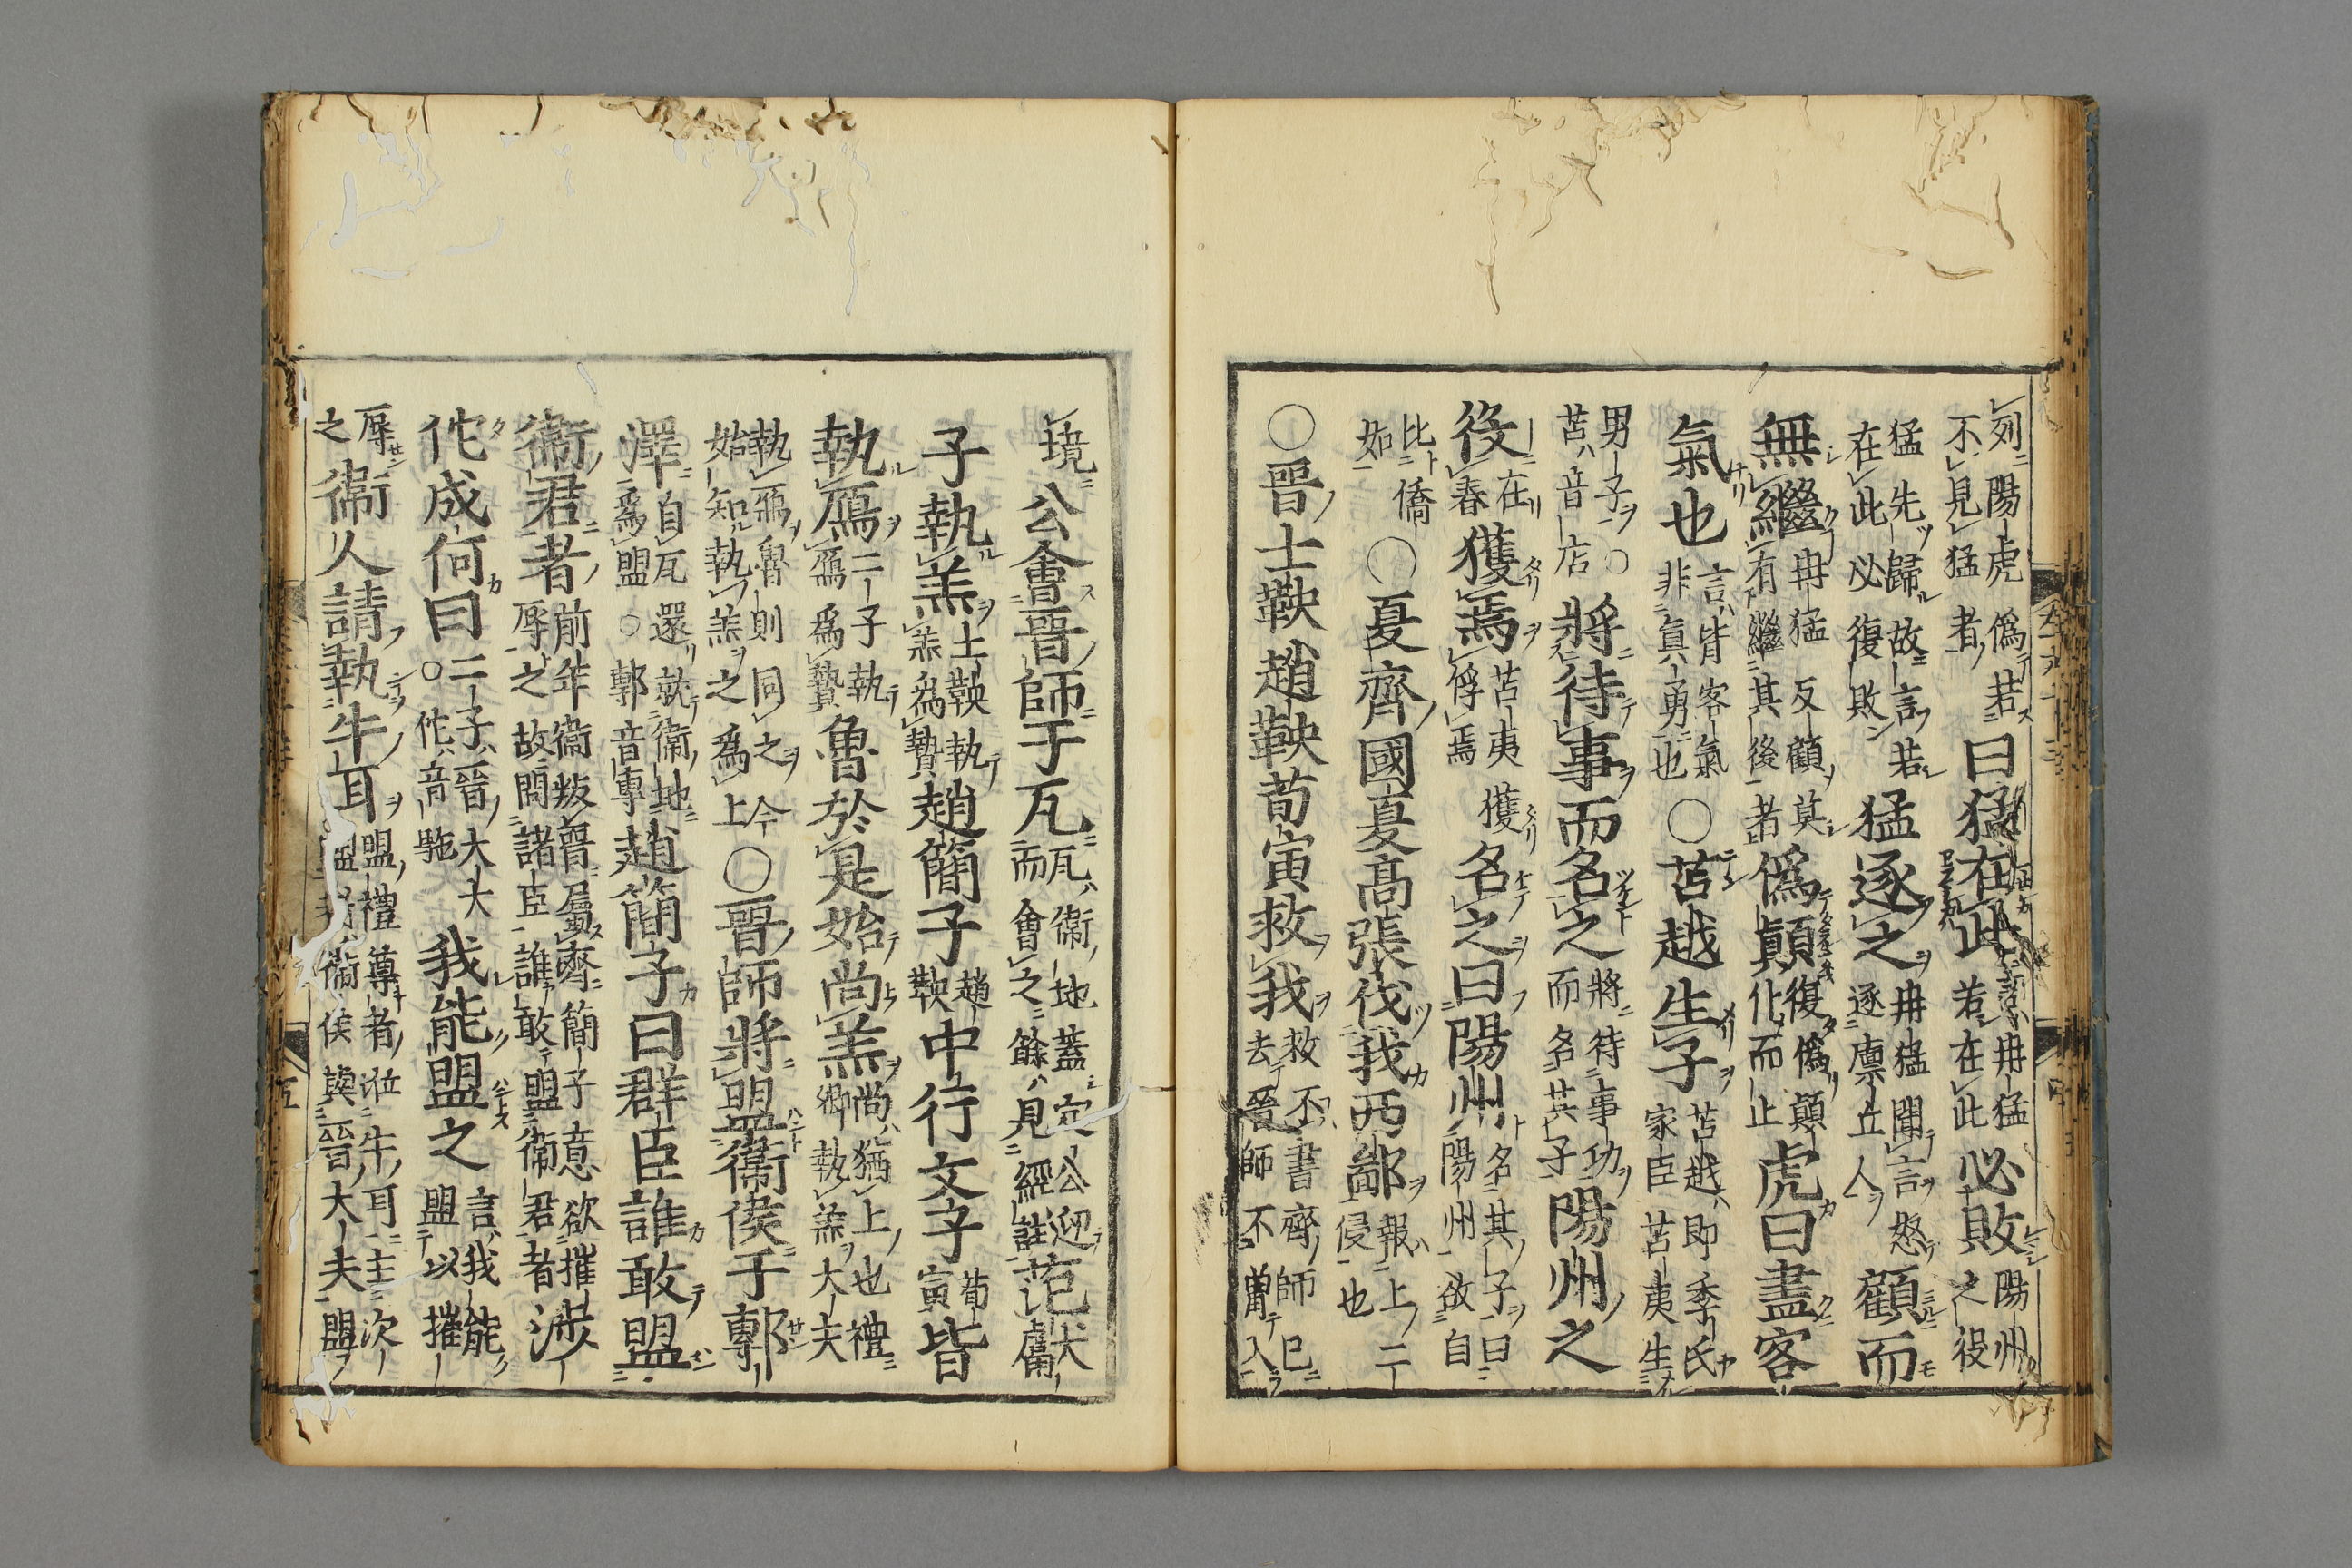 列陽虎偽若不見猛者曰猛在此言冉猛若在此必敗陽州之役
猛先歸故言若在此必復敗猛逐之冉猛聞言怒逐廩丘人顧而
無繼冉猛反顧莫有繼其後者偽顛復偽顛仆而止虎曰盡客
氣也言皆客氣非真勇也○苫越生子苫越即季氏家臣苫夷生
男子○苫音店將待事而名之將待事功而名其子陽州之
役在春獲焉苫夷獲俘焉名之曰陽州名其子曰陽州欲自
比僑如○夏齊國夏高張伐我西鄙報上二侵也
○晉士鞅趙鞅荀寅救我救不書齊師已去晉師不曾入
境公會晉師于瓦瓦衛地蓋定公迎而會之餘見經註范獻
子執羔士鞅執羔為贄趙簡子趙鞅中行文子荀寅皆
執鴈二子執鴈為贄魯於是始尚羔尚猶上也禮卿執羔大夫
執鴈魯則同之今始知執羔之為上○晉師將盟衛侯于鄟
澤自瓦還就衛地為盟○鄟音專趙簡子曰群臣誰敢盟
衛君者前年衛叛晉屬齊簡子意欲摧辱之故問諸臣誰敢盟衛君者涉
佗成何曰二子晉大夫○佗音駞我能盟之言我能盟以摧
辱之衛人請執牛耳盟禮尊者涖牛耳主次盟衛侯與晉大夫盟